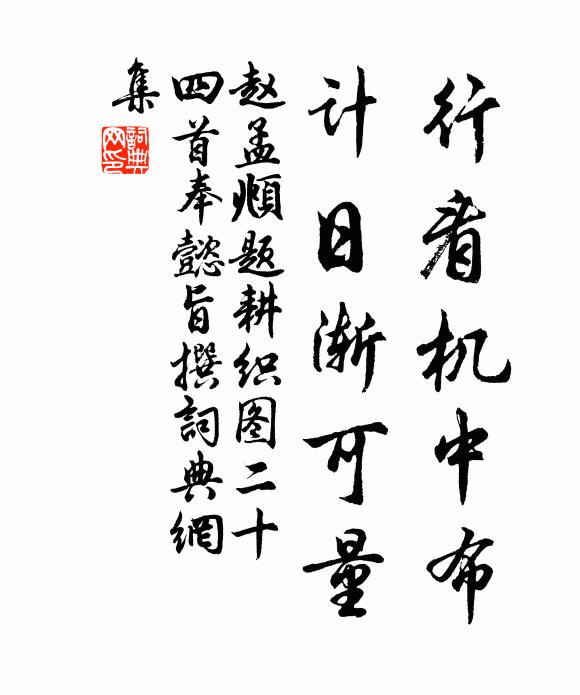 行看机中布
计日渐可量
赵孟頫题耕织图二十
四首奉懿旨撰詞典網
集
詞典
网印